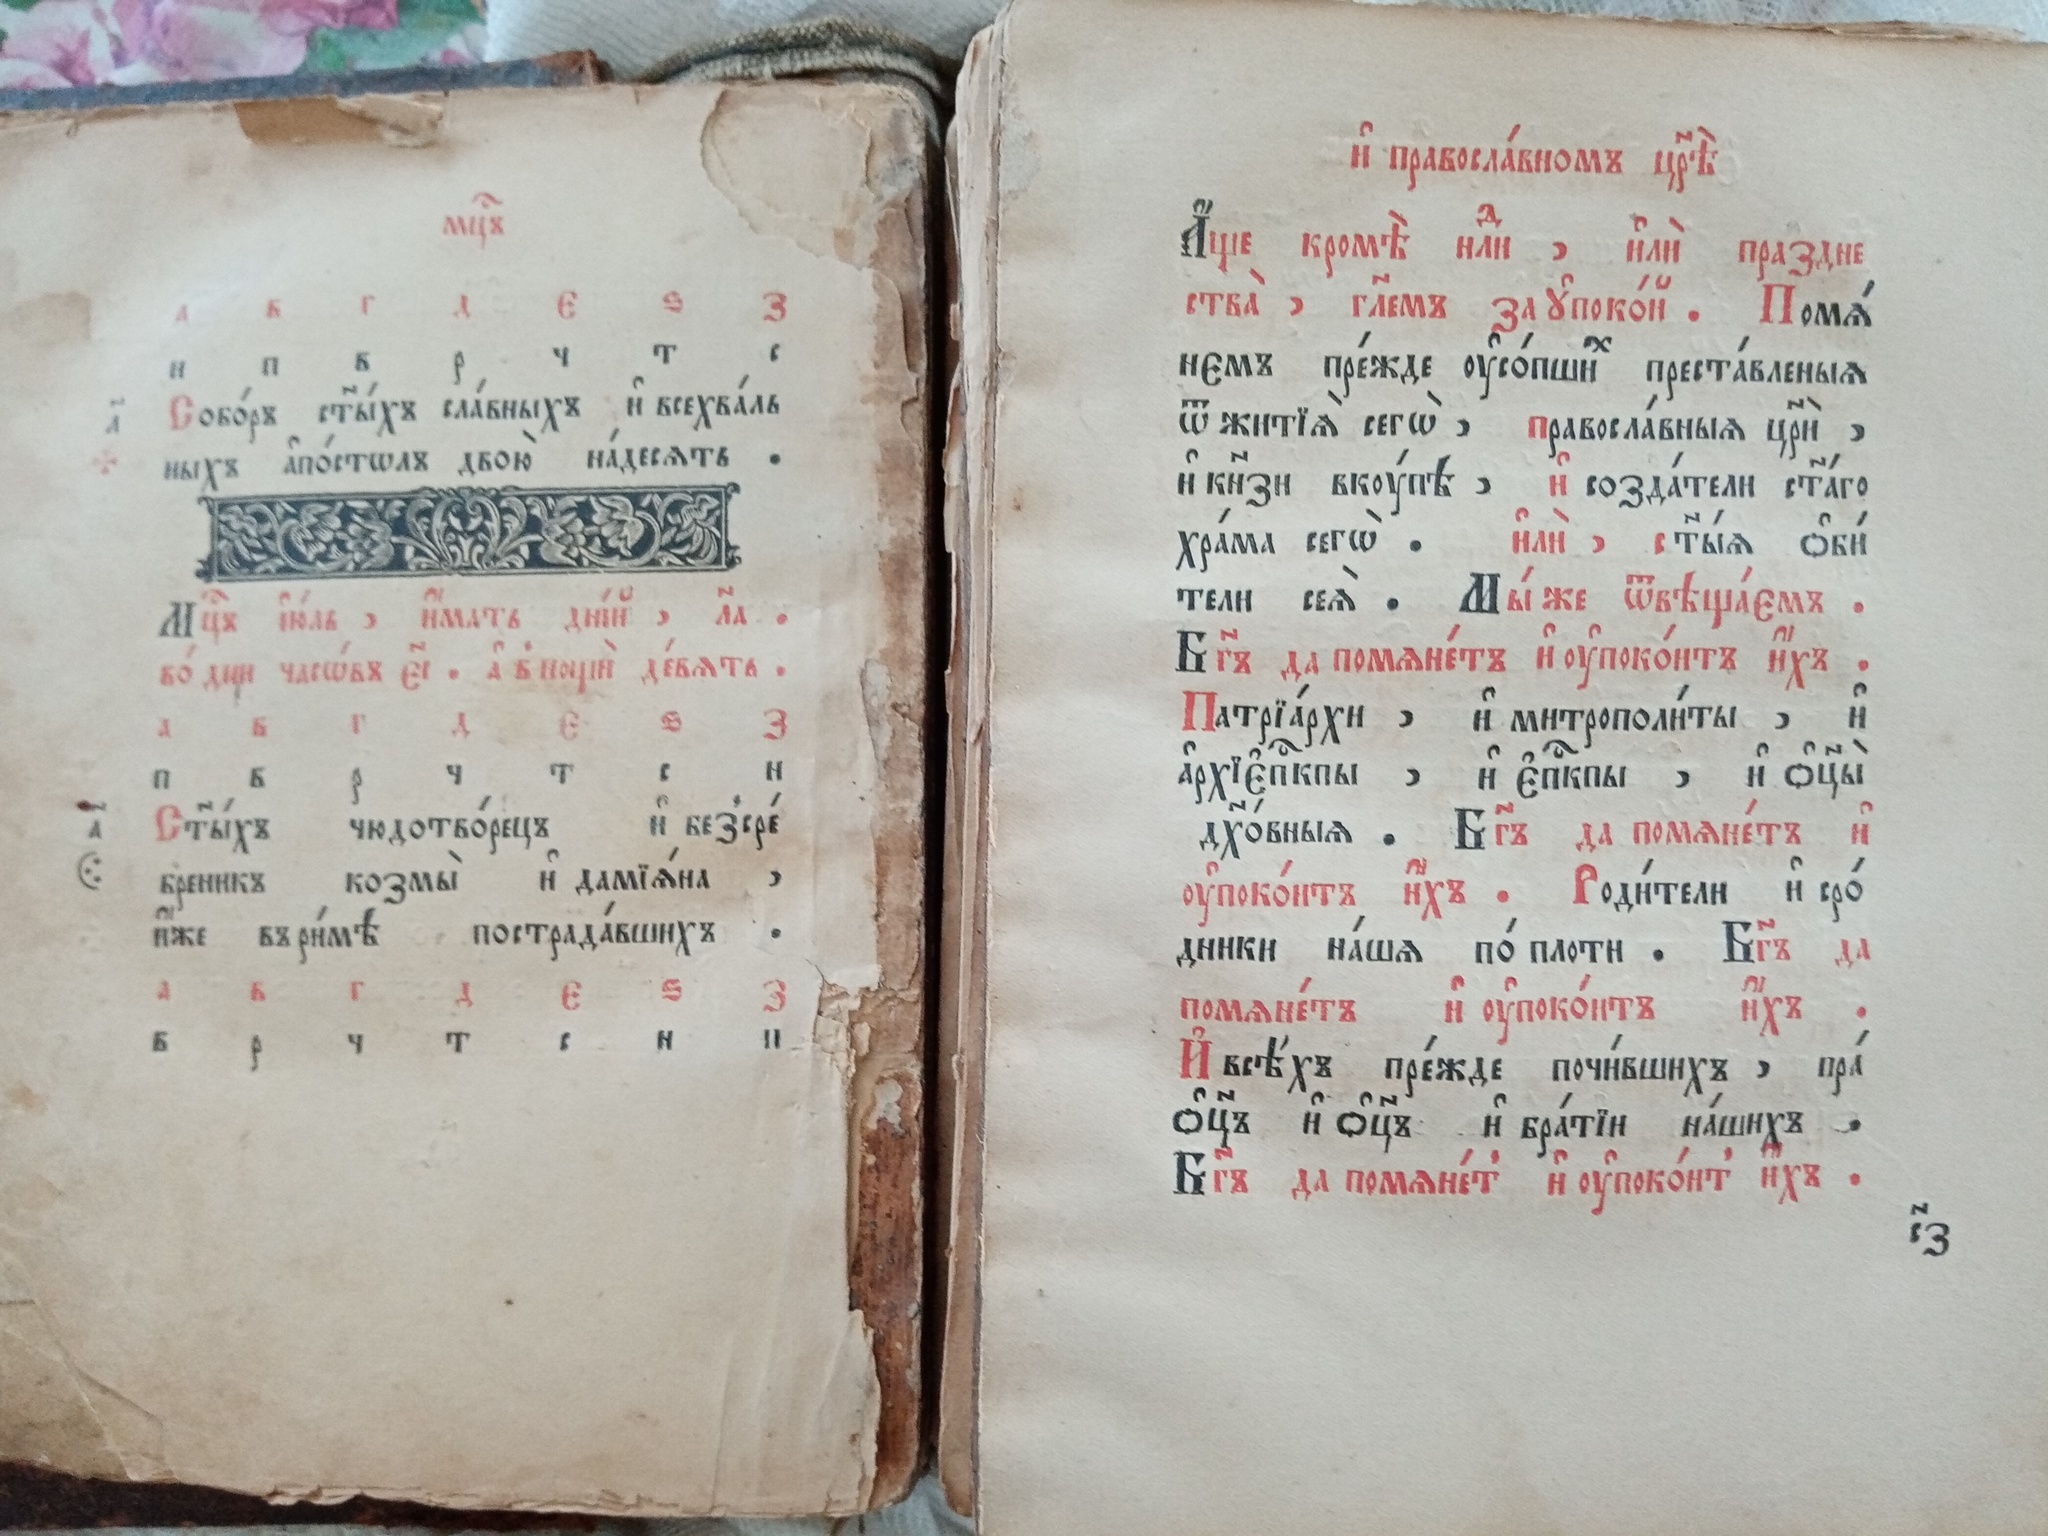 мц҇ъ
а в г д є ѕ з
н п в р ч т с
а҃ Собо́ръ ст҃ы́хъ сла́вныхъ и҆ всехва́ль
ныхъ а҆по́столъ двою̀ на́десѧть .
Мц҇ъ і҆ю́ль , и҆́мать дні́й , л҃а .
во́ дни часѡ́въ є҃і . а҆ в̾ нощѝ де́вѧть .
а в г д є ѕ з
п в р ч т с н
а҃ Ст҃ы́хъ чюдотво́рецъ и҆ без̾сре́
бреникъ козмы̀ и҆ дамїѧ́на ,
и҆́же въ ри́мѣ пострада́вшихъ .
а в г д є ѕ з
в р ч т с н п
и҆ правосла́вномъ цр҃ѣ̀
А҆́ще кромѣ̀ нлⷣи , и҆лѝ праздне
ства̀ , гл҃емъ за ᲂу҆поко́й . Помѧ́
нємъ пре́жде ᲂу҆со́пшиⷯ преста́вленыѧ
ѿ житїѧ̀ сегѡ̀ , правосла́вныѧ цр҃ѝ ,
и҆ кн҃зи вкꙋ́пѣ , и҆ созда́тели ст҃а́го
хра́ма сегѡ̀ . и҆лѝ , ст҃ы́ѧ ѻ҆би́
тели сеѧ̀ . Мы́ же ѿвѣща́ємъ .
Бг҃ъ да помѧне́тъ и҆ ᲂу҆поко́итъ и҆́хъ .
Патрїа́рхи , и҆ митрополи́ты , и҆
а҆рхїє҆пⷭ҇кпы , и҆ є҆пⷭ҇кпы , и҆ ѻ҆ц҃ы̀
дх҃о́вныѧ . Бг҃ъ да помѧне́тъ и҆
ᲂу҆поко́итъ и҆́хъ . Роди́тели и҆ сро́
дники на́шѧ по́ плоти . Бг҃ъ да
помѧне́тъ и҆ ᲂу҆поко́итъ и҆́хъ .
И҆ всѣ́хъ пре́жде почи́вшихъ , пра́
ѻ҆ц҃ъ и҆ ѻ҆ц҃ъ и҆ бра́тїи на́шихъ .
Бг҃ъ да помѧне́т̾ и҆ ᲂу҆поко́ит̾ и҆́хъ .
с҃з